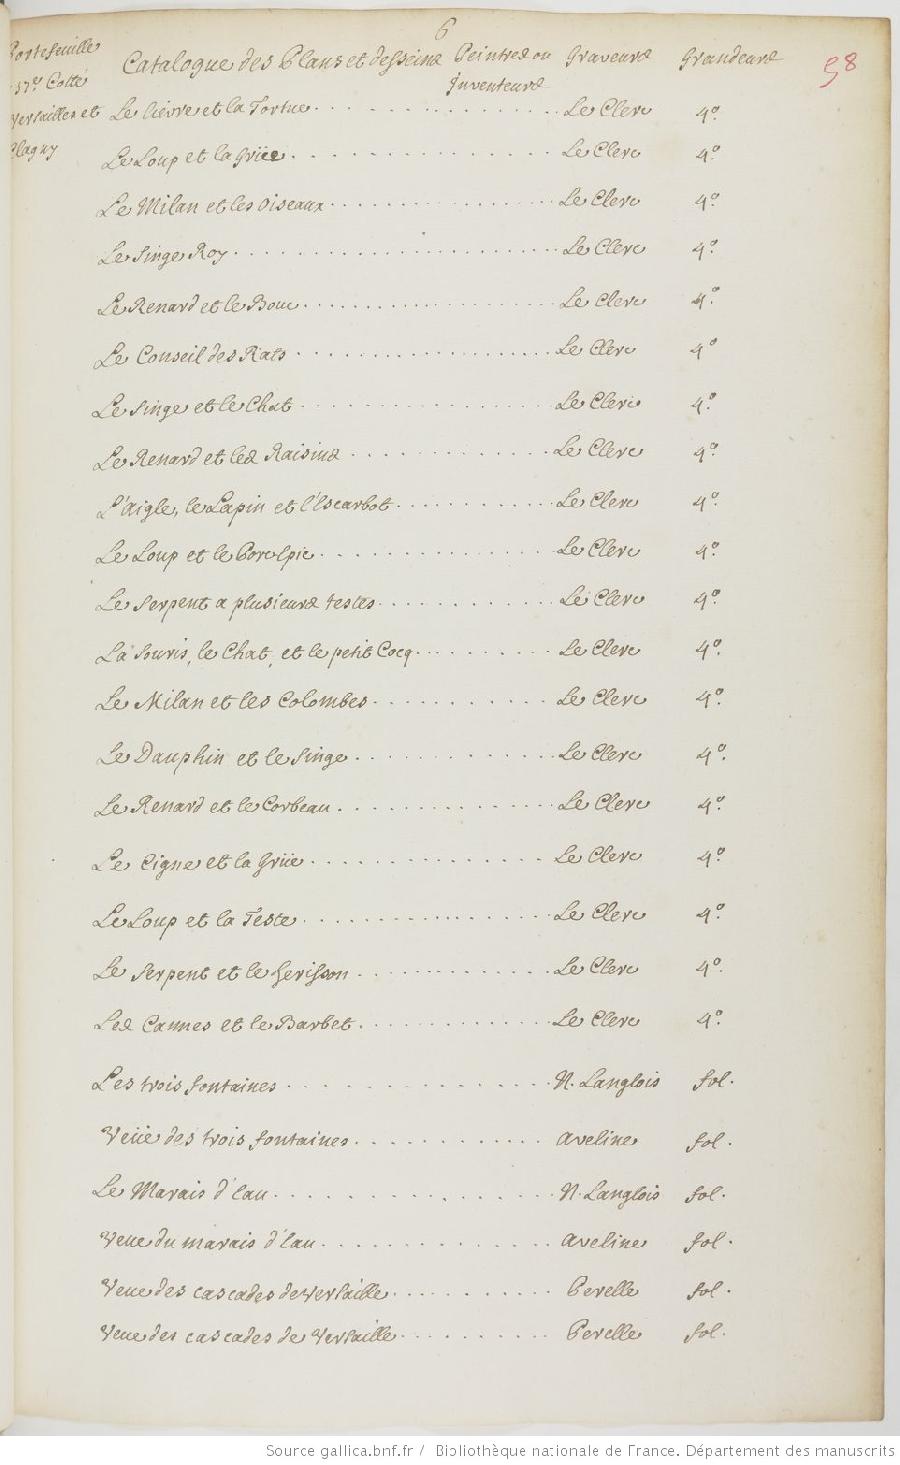 6
58
Portefeuille
37er Cotté
Versailles et
Clagny
Catalogue des Plans et desseins Peintres ou Graveurs Grandeurs
Inventeurs
Le lièvre et la Tortue Le Clerc 4º
Le Loup et la Grüe Le Clerc 4º
Le Milan et les oiseaux Le Clerc 4º
Le Singe Roy Le Clerc 4º
Le Renard et le Bouc Le Clerc 4º
Le Conseil des Rats Le Clerc 4º
Le Singe et le Chat Le Clerc 4º
Le Renard et les Raisins Le Clerc 4º
L'Aigle, le Lapin et l'Escarbot Le Clerc 4º
Le Loup et le Porcépic Le Clerc 4º
Le Serpent a plusieurs testes Le Clerc 4º
La Souris, le Chat, et le petit Cocq Le Clerc 4º
Le Milan et les Colombes Le Clerc 4º
Le Dauphin et le Singe Le Clerc 4º
Le Renard et le Corbeau Le Clerc 4º
Le Cigne et la Grüe Le Clerc 4º
Le Loup et la Teste Le Clerc 4º
Le Serpent et le herisson Le Clerc 4º
Les Cannes et le Barbet Le Clerc 4º
Les trois fontaines N. Langlois fol.
Veüe des trois fontaines Aveline fol.
Le Marais d'Eau N. Langlois fol.
Veue du marais d'Eau Aveline fol.
Veue des cascades de Versaille Perelle fol.
Veue des cascades de Versaille Perelle fol.
Source gallica.bnf.fr / Bibliothèque nationale de France. Département des manuscrits